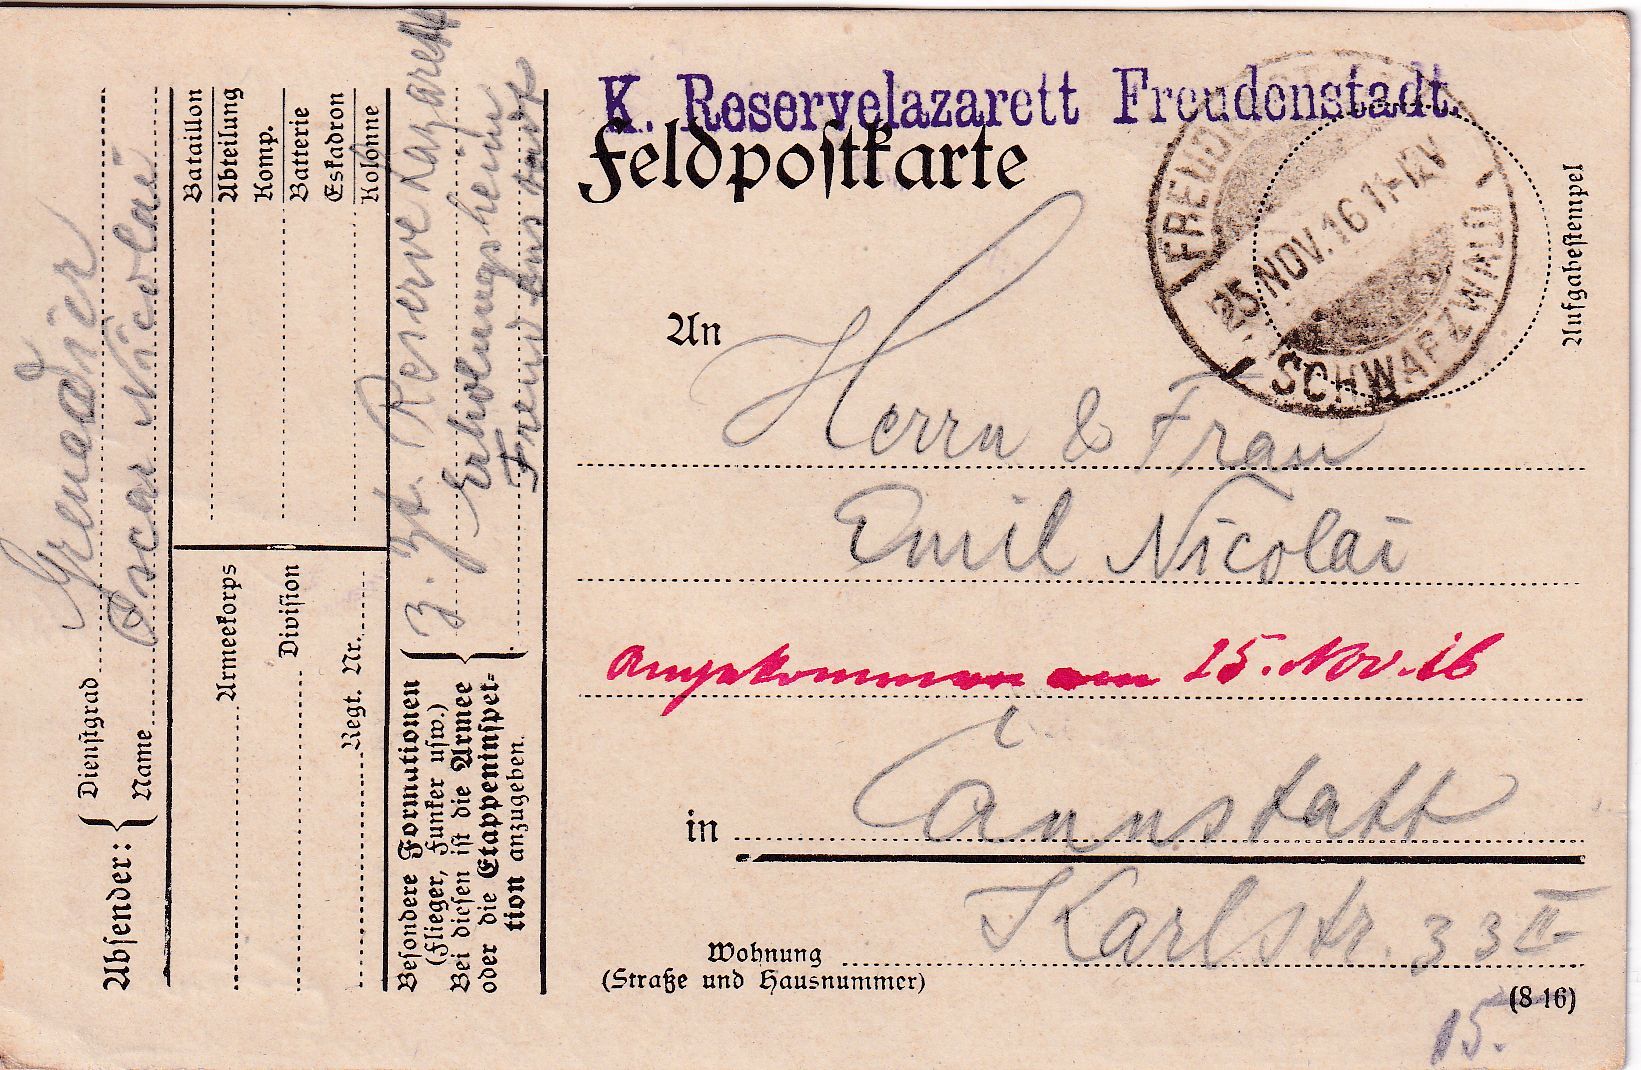 K. Reservelazarett Freudenstadt.
Feldpostkarte
FREUDENSTADT
25.NOV.16 11-12V
SCHWARZWALD
Aufgabestempel
An
Herrn & Frau
Emil Nicolai
angekommen am 25. Nov. 16
in Cannstatt
Karlstr. 33 II
Wohnung
(Straße und Hausnummer)
(8 16)
15.
Absender:
Dienstgrad Grenadier
Name Oscar Nicolai
Bataillon
Abteilung
Komp.
Batterie
Eskadron
Kolonne
Armeekorps
Division
Regt. Nr.
Besondere Formationen
(Flieger, Funker usw.)
Bei diesen ist die Armee
oder die Etappeninspek-
tion anzugeben.
z. Zt. Reserve Lazarett
Erholungsheim
Freudenstadt